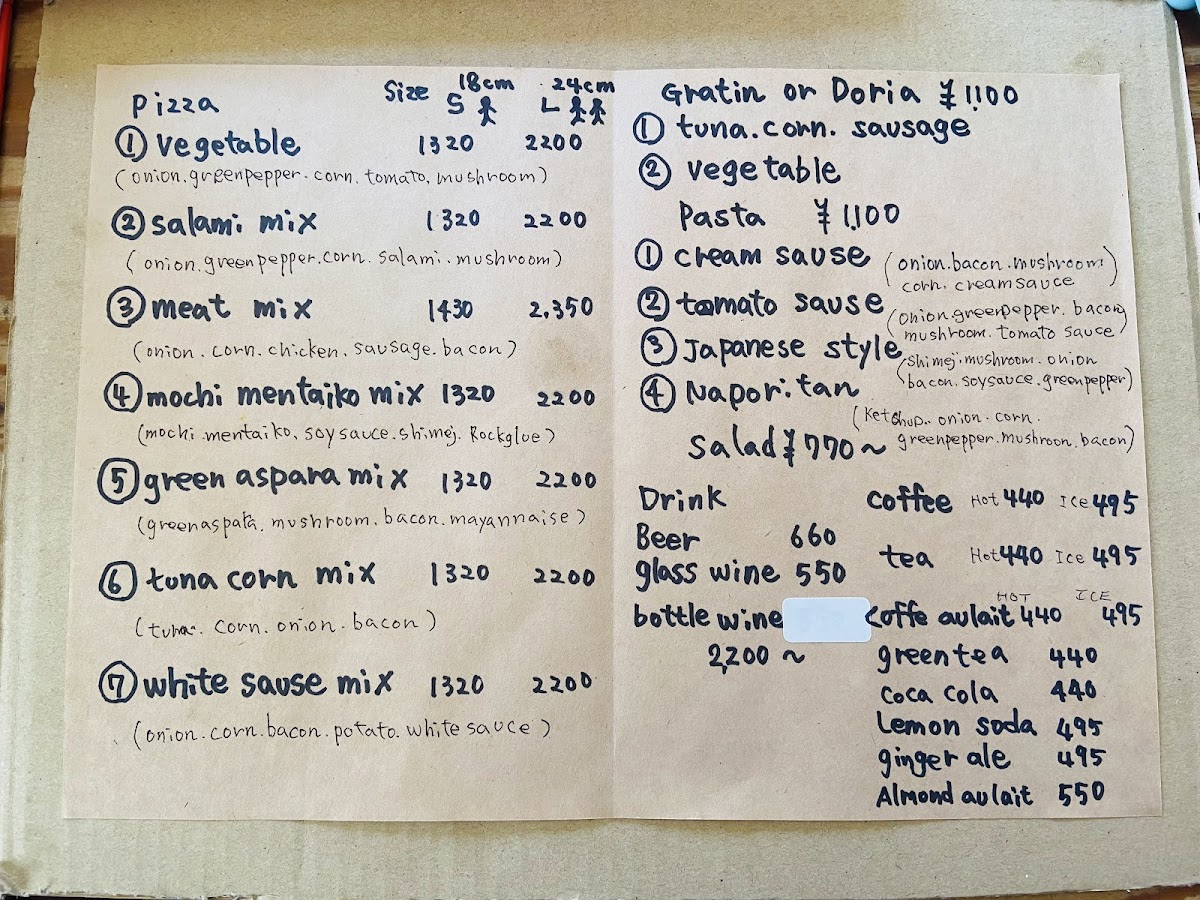 Pizza Size 18cm S 24cm L
① vegetable 1320 2200
(onion.greenpepper.corn.tomato.mushroom)
② salami mix 1320 2200
(onion.greenpepper.corn.salami.mushroom)
③ meat mix 1430 2,350
(onion.corn.chicken.sausage.bacon)
④ mochi mentaiko mix 1320 2200
(mochi.mentaiko.soysauce.shimeji.Rockglue)
⑤ green aspara mix 1320 2200
(greenaspara.mushroom.bacon.mayannaise)
⑥ tuna corn mix 1320 2200
(tuna.corn.onion.bacon)
⑦ white sause mix 1320 2200
(onion.corn.bacon.potato.white sauce)
Gratin or Doria ¥1,100
① tuna.corn.sausage
② vegetable
Pasta ¥1,100
① cream sause (onion.bacon.mushroom
corn.creamsauce)
② tomato sause (onion.greenpepper.bacon
mushroom.tomato sauce)
③ Japanese style (shimeji.mushroom.onion
bacon.soysauce.greenpepper)
④ Naporitan (ketchup..onion.corn.
greenpepper.mushroon.bacon)
Salad ¥770~
Drink
Beer 660
glass wine 550
bottle wine
2,200~
coffee Hot 440 Ice 495
tea Hot 440 Ice 495
coffe aulait HOT 440 ICE 495
greentea 440
coca cola 440
Lemon soda 495
ginger ale 495
Almond aulait 550